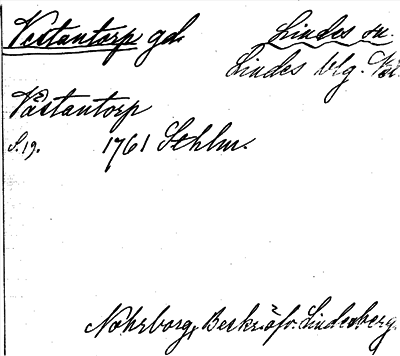 Vestantorp gd. Lindes sn.
Lindes blg. Vstm.
Västantorp
S. 19. 1761 Sthlm.
Nohrborg, Beskr. öfv. Lindesberg.